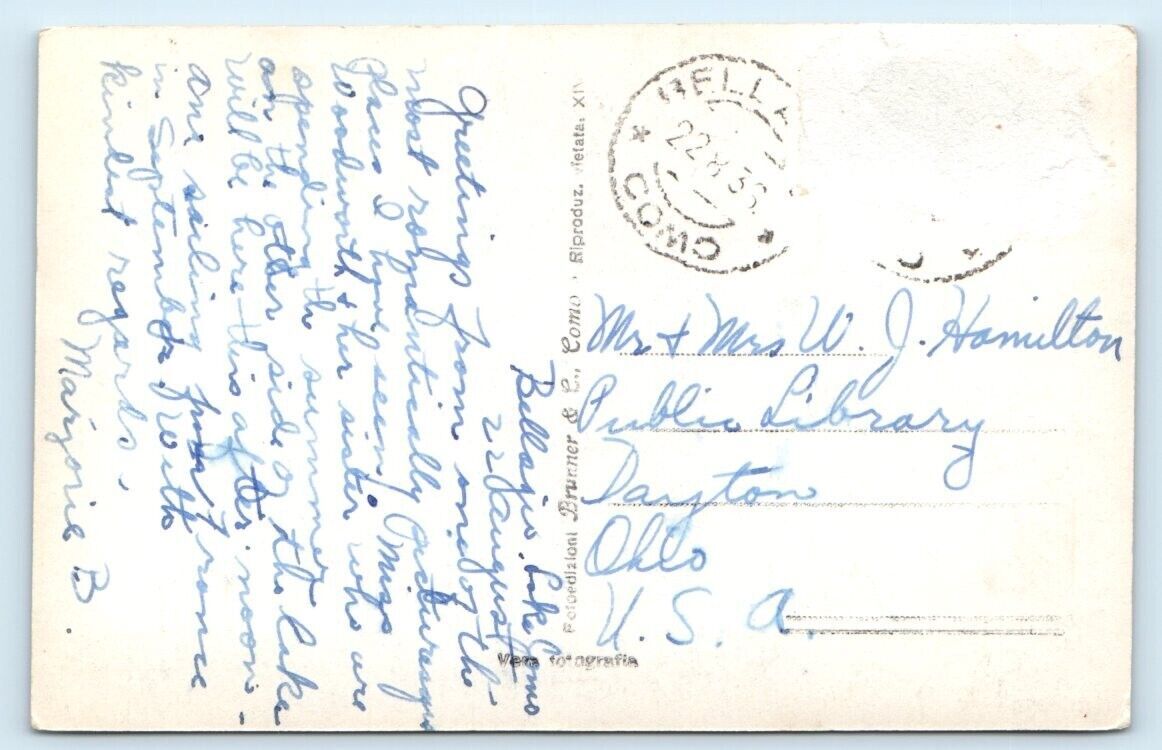 Bellagio. Lake Como
22 August
Greetings from one of the
most romantically picturesque
places I have seen. Miss
Woodworth & her sister who are
spending the summer
on the other side of the lake
will be here this after-noon.
am sailing from France
in September. With
kindest regards,
Marjorie B.
Fotoedizioni Brunner & C., Como - Riproduz. vietata.
Vera fotografia
BELLA
22.8.3
COMO
Mr & Mrs W. J. Hamilton
Public Library
Dayton
Ohio
U. S. A.